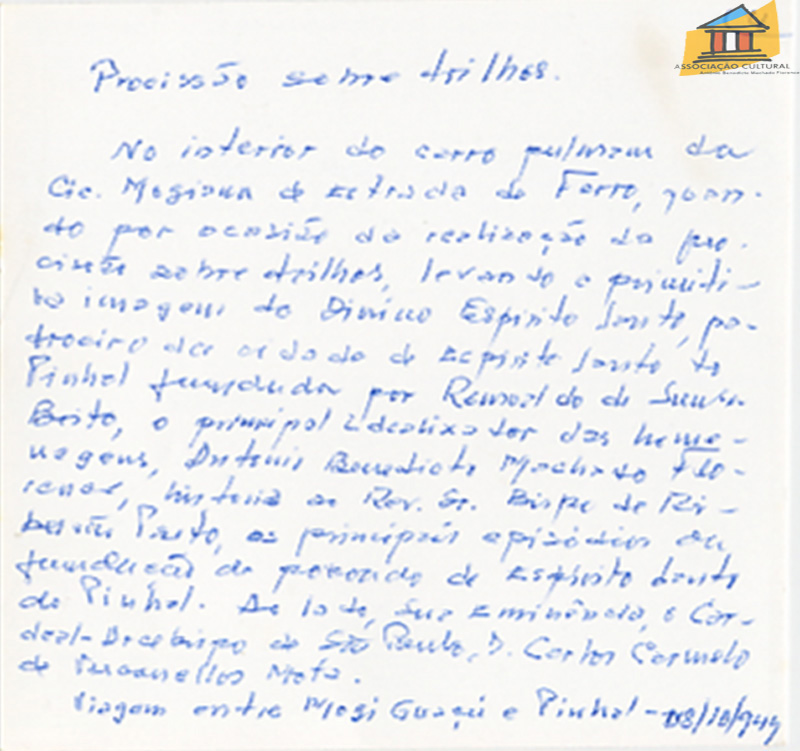 ASSOCIAÇÃO CULTURAL
Antônio Benedicto Machado Florence
Procissão sobre trilhos.
No interior do carro pulmam da
Cia. Mogiana de Estrada de Ferro, quan-
do por ocasião da realização da pro-
cissão sobre trilhos, levando a primiti-
va imagem do Divino Espirito Santo, pa-
droeiro da cidade de Espirito Santo do
Pinhal fundada por Romualdo de Souza
Brito, o principal idealizador das home-
nagens, Antonio Benedicto Machado Flo-
rence, historia ao Rev. Sr. Bispo de Ri-
beirão Preto, os principais episódios da
fundação do povoado de Espirito Santo
do Pinhal. Ao lado, Sua Eminência, o Car-
deal-Arcebispo de São Paulo, D. Carlos Carmelo
de Vasconcellos Mota.
Viagem entre Mogi Guaçú e Pinhal - 08/10/949